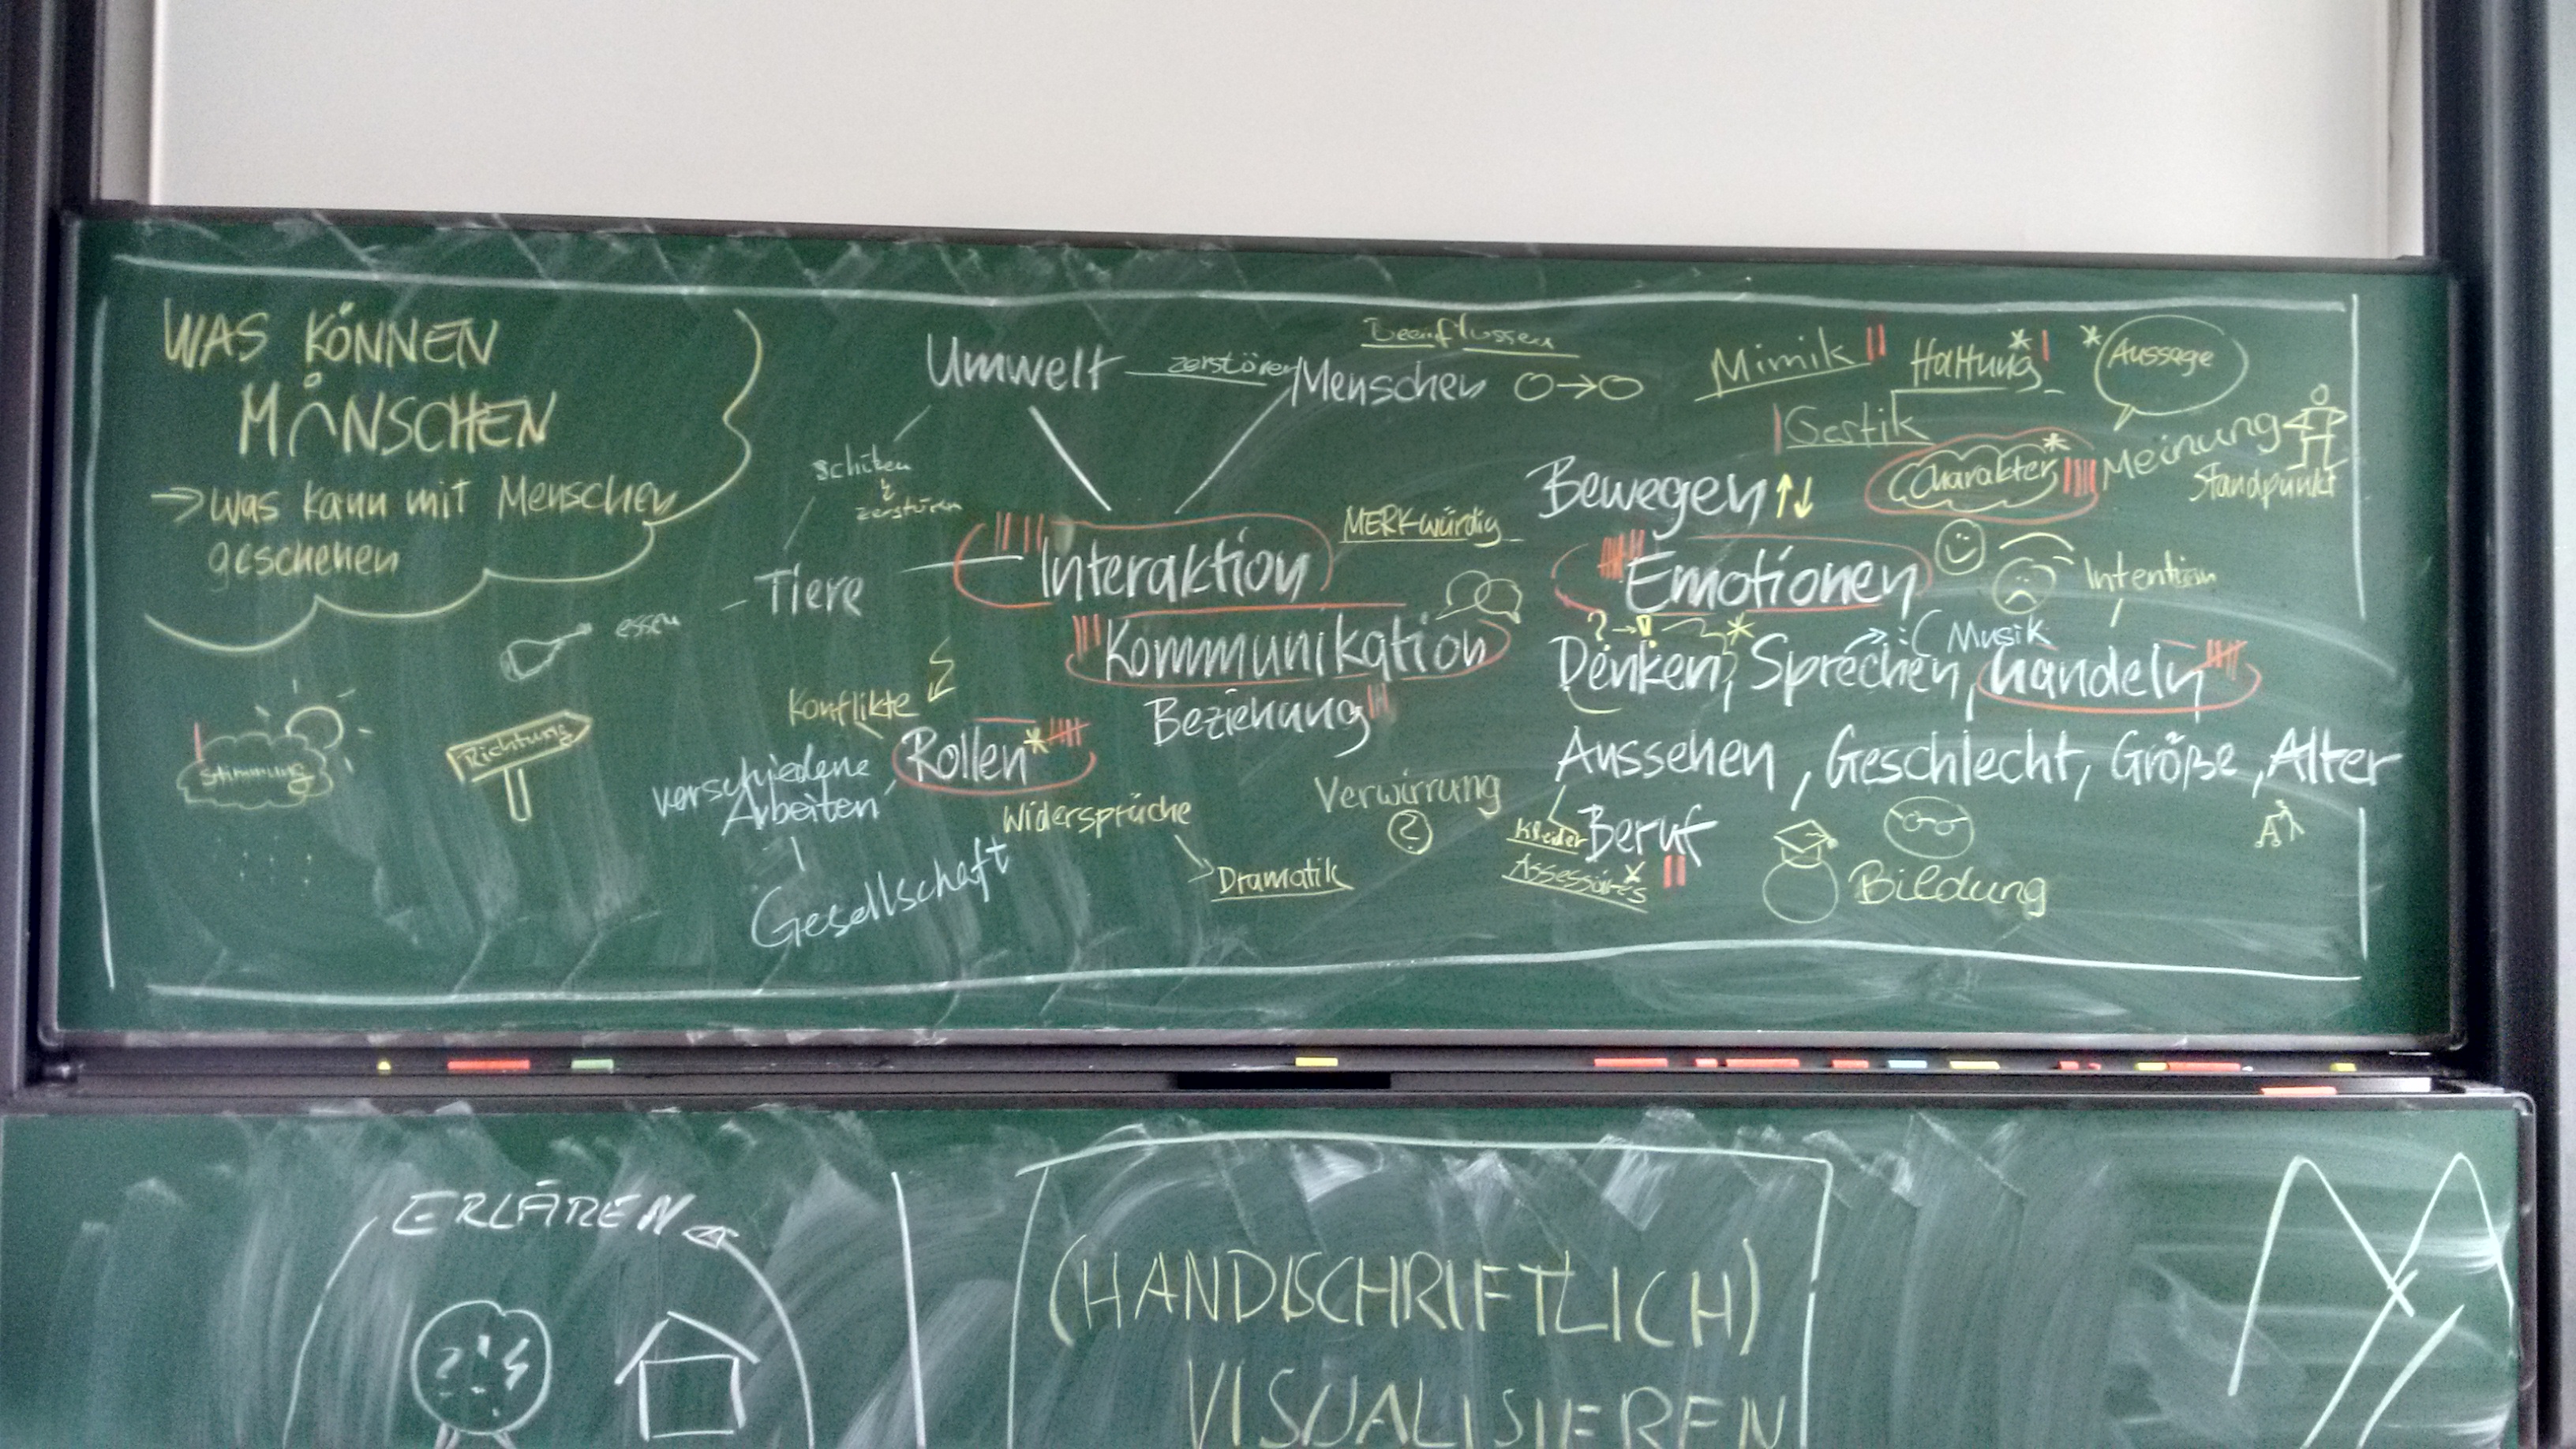 WAS KÖNNEN
MENSCHEN
→ was kann mit Menschen
geschehen
Umwelt
zerstören
Menschen
Beeinflussen
Mimik
Haltung*
* Aussage
Gestik
Charakter*
Meinung
Standpunkt
Bewegen
schützen
zerstören
MERKwürdig
Interaktion
Emotionen
Intention
Tiere
essen
Kommunikation
? → !
*
Musik
Denken, Sprechen, handeln
Konflikte
Beziehung
Stimmung
Richtung
Rollen*
verschiedene
Arbeiten
Aussehen, Geschlecht, Größe, Alter
Widersprüche
Verwirrung
?
Kleider
Beruf
Gesellschaft
Dramatik
Assessoires
Bildung
ERLÄREN
(HANDSCHRIFTLICH)
VISUALISIEREN